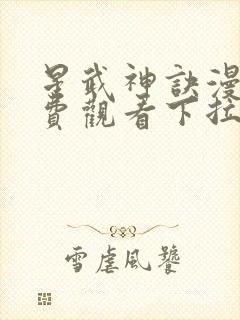 星武神訣漫
費觀看下拉
雪虐風饕